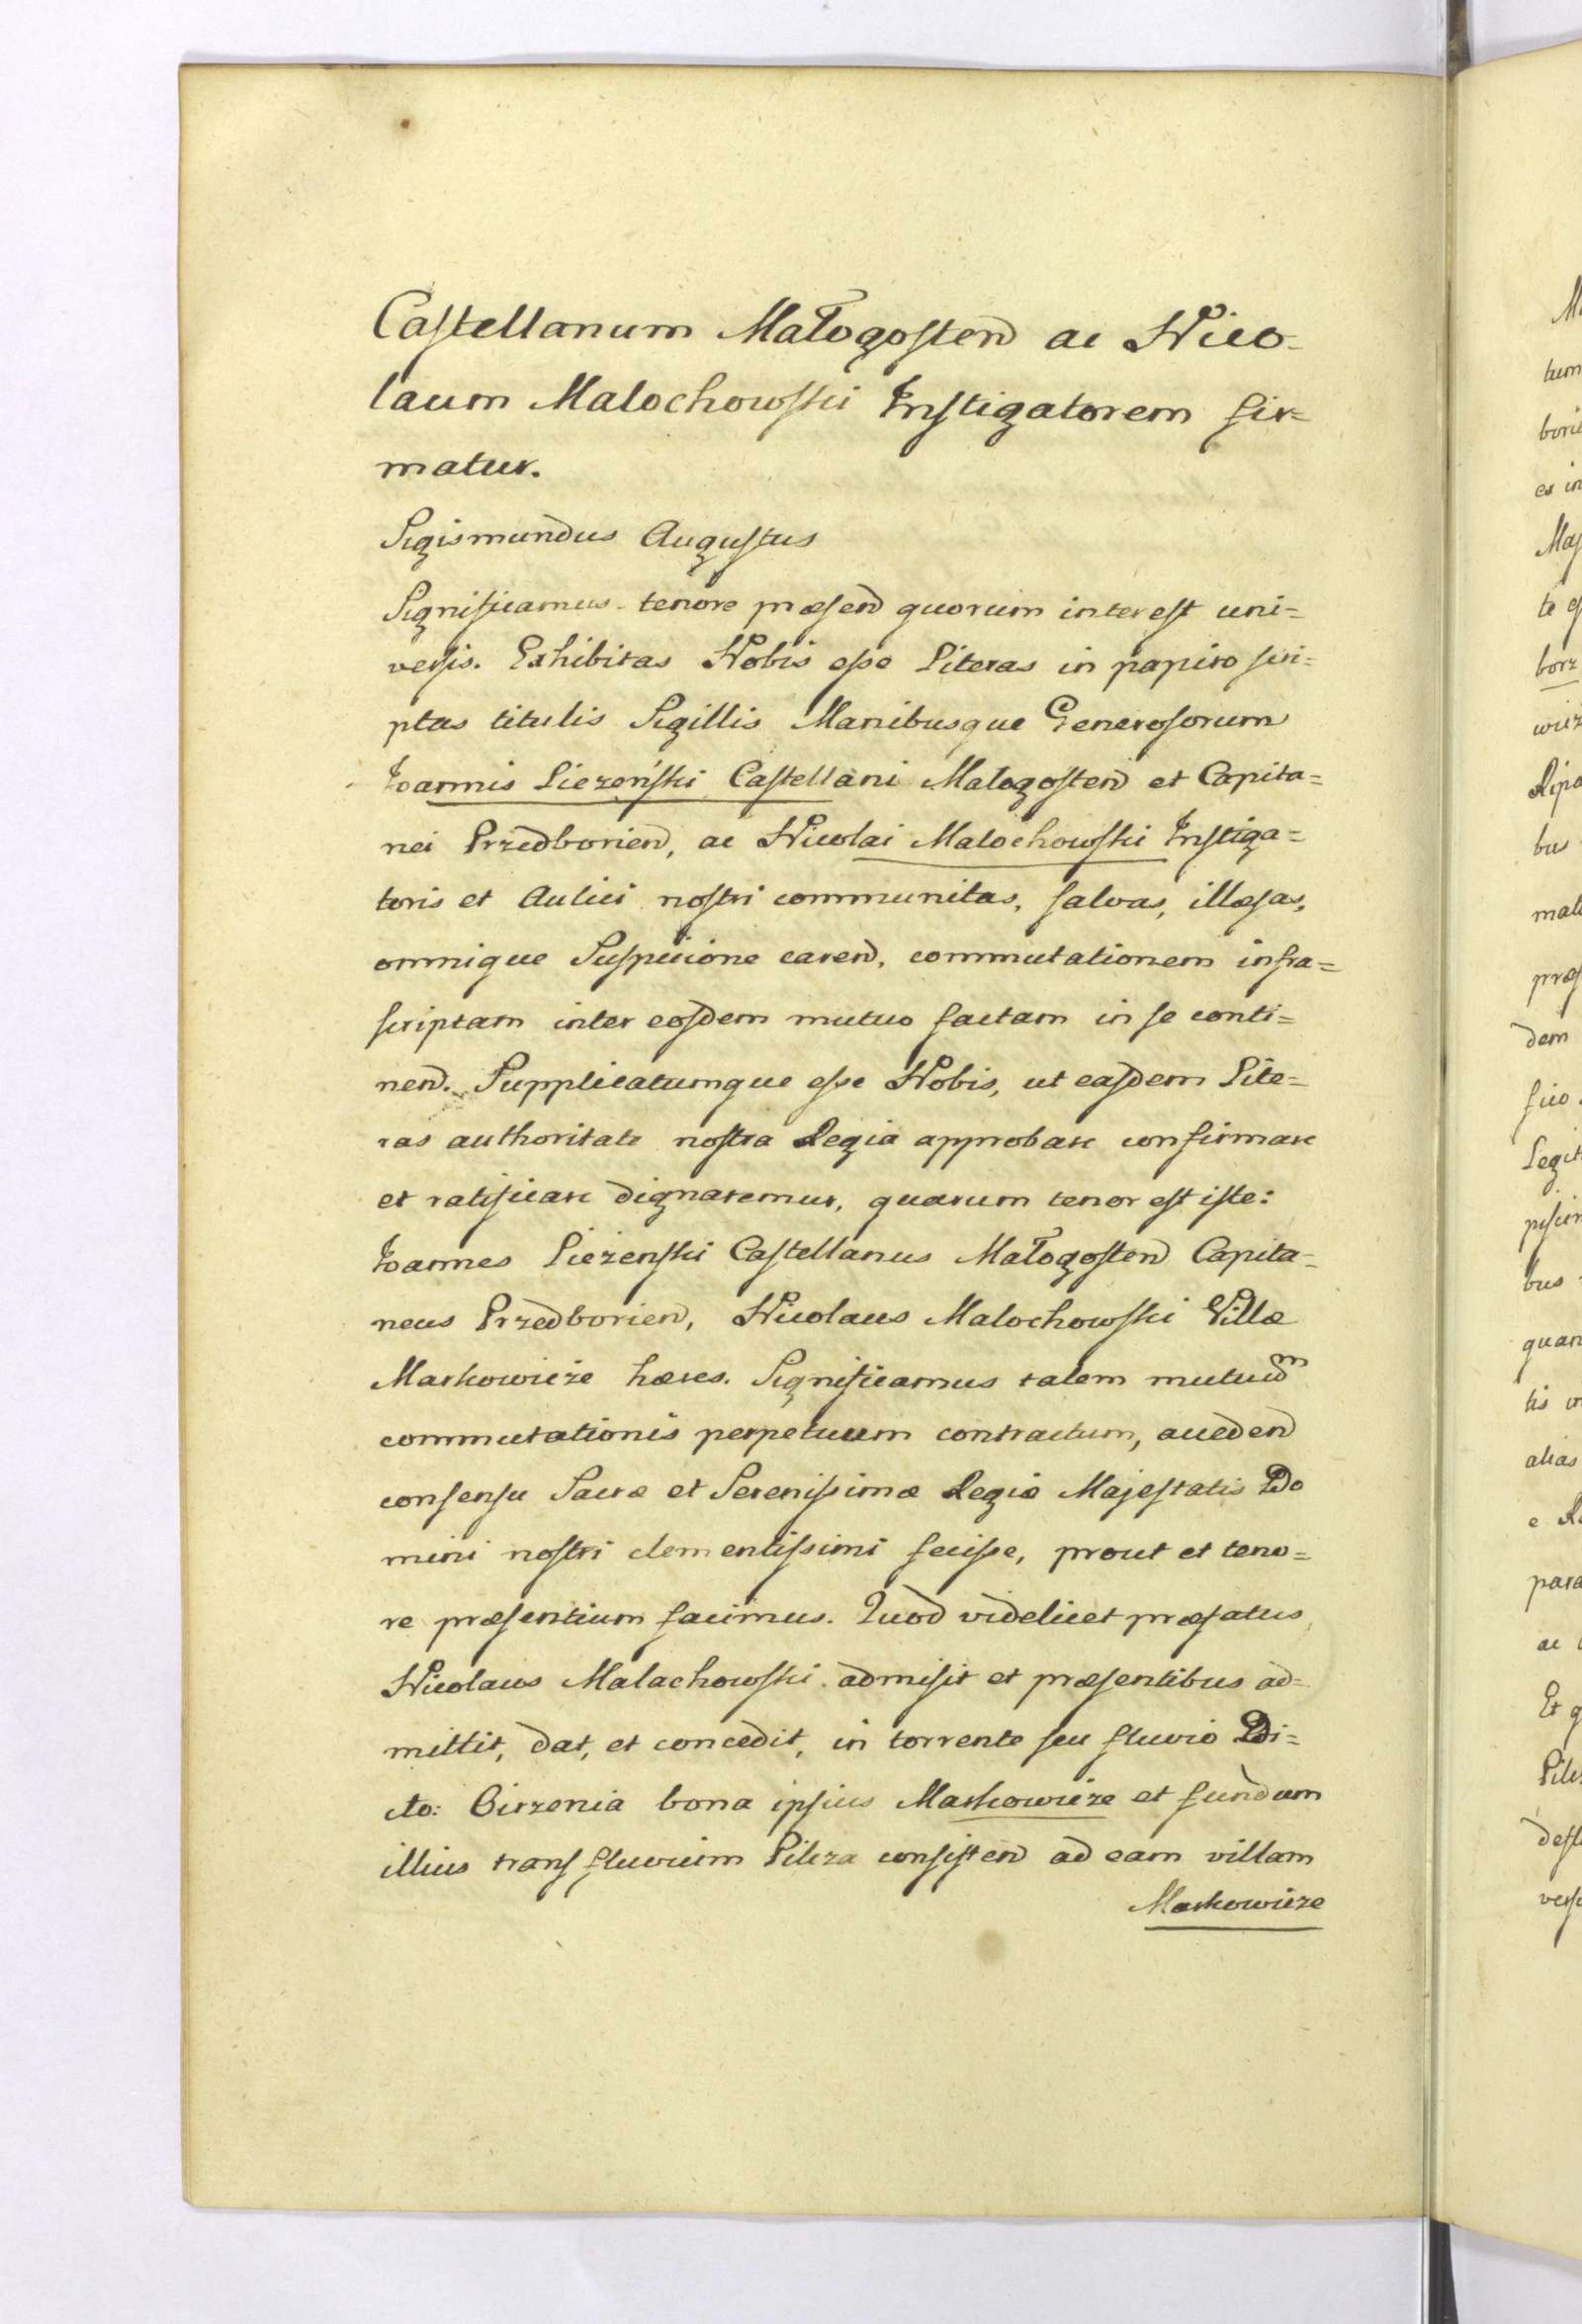 Castellanum Małogosten ac Nico-
laum Malochowski Instigatorem fir=
matur.
Sigismundus Augustus
Significamus tenore præsen quorum interest uni=
versis. Exhibitas Nobis esse Literas in papiro scri=
ptas titulis Sigillis Manibusque Generosorum
Joannis Liezeński Castellani Malogosten et Capita=
nei Przedborien, ac Nicolai Malochowski Instiga=
toris et Aulici nostri communitas, salvas, illæsas,
omnique Suspicione caren, commutationem infra=
scriptam inter eosdem mutuo factam in se conti=
nen. Supplicatumque esse Nobis, ut easdem Lite=
ras authoritate nostra Regia approbare confirmare
et ratificare dignaremur, quarum tenor est iste:
Joannes Liezenski Castellanus Małogosten Capita=
neus Przedborien, Nicolaus Malochowski Villæ
Markowicze hæres. Significamus talem mutuum
commutationis perpetuum contractum, acceden
consensu Sacræ et Serenissimæ Regiæ Majestatis Do
mini nostri clementissimi fecisse, prout et teno=
re præsentium facimus. Quod videlicet præfatus
Nicolaus Malachowski admisit et præsentibus ad=
mittit, dat, et concedit, in torrente seu fluvio Di=
cto: Cirzenia bona ipsius Markowicze et fundum
illius trans fluvium Pilcza consisten ad eam villam
Markowicze
M
tum
bori
es in
Maj
te
borz
wicz
Ripa
bus
mal
præ
dem
fuo
Legit
piscin
bus
quan
tis
alias
e
para
ac
Et q
Pilc
defl
vers